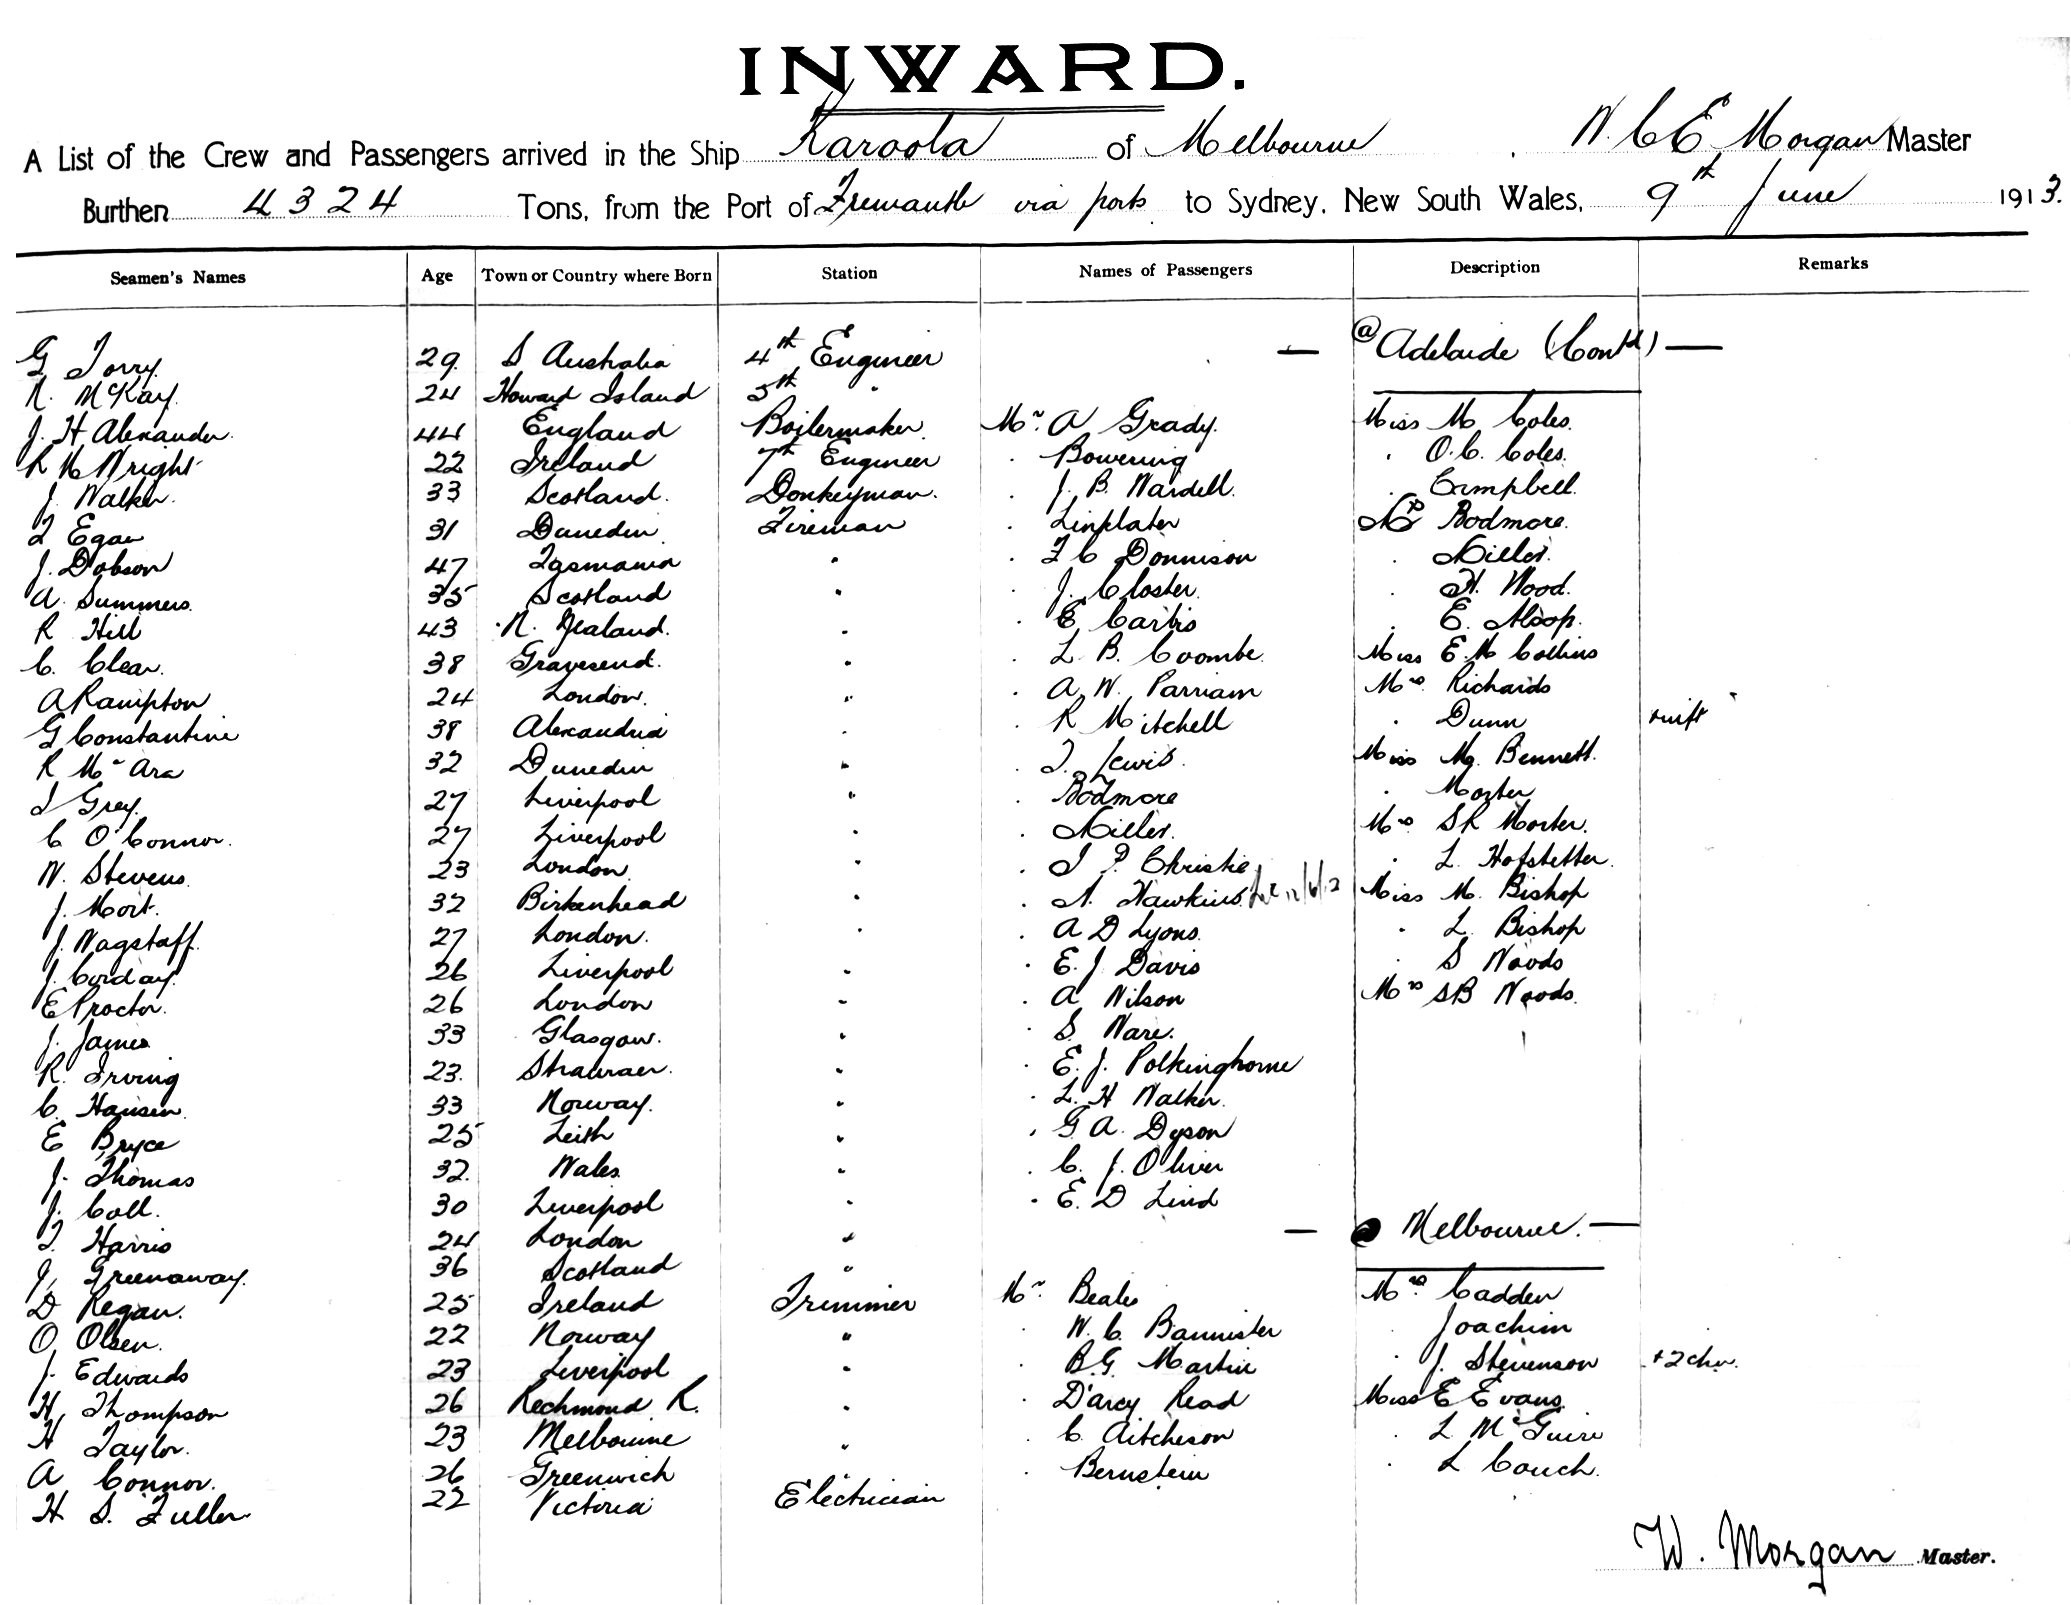 INWARD.
A List of the Crew and Passengers arrived in the Ship Karoola of Melbourne . W. C E Morgan Master
Burthen 4324 Tons, from the Port of Fremantle via ports to Sydney, New South Wales, 9th June 1913.
Seamen's Names Age Town or Country where Born Station Names of Passengers Description Remarks
— @ Adelaide (Contd) —
G Torry. 29. S Australia 4th Engineer
N. McKay. 24 Howard Island 5th "
J. H Alexander. 44 England Boilermaker. Mr. A Grady. Miss M Coles.
R M Wright 22 Ireland 7th Engineer . Bowering . O. C. Coles.
J. Walker. 33 Scotland. Donkeyman. . J. B. Wardell. . Campbell.
T Egan 31 Dunedin. Fireman . Linplater Mrs Bodmore.
J. Dobson 47 Tasmania " . F C Donnison . Miller.
A. Summers. 35 Scotland " . J. Closter. . H. Wood.
R Hill 43 N. Zealand. " . E. Curtis . E. Alsop.
C. Clear. 38 Gravesend. " . L. B. Coombe. Miss E. M Collins
A Rampton 24 London. " . A. W. Parriam Mrs. Richards
G Constantine 38 Alexandria " . R Mitchell . Dunn
R McAra 32 Dunedin " . T. Lewis. Miss Mg. Bennett.
T Grey. 27 Liverpool " . Bodmore . Morter
C O'Connor. 27 Liverpool " . Miller. Mrs SR Morter.
W. Stevens. 23 London. " . J P. Christie . L. Hofstetter.
J. Mort. 32 Birkenhead " . A. Hawkins. Miss M. Bishop
J. Wagstaff. 27 London. " . A D Lyons. . L. Bishop
J. Corday. 26 Liverpool " . E. J. Davis . S Woods
E Proctor. 26 London " . A Wilson Mrs SB Woods.
J. James 33 Glasgow. " . S. Ware.
R. Irving 23. Stranraer. " . E. J. Polkinghorne
C. Hansen 33 Norway. " . L. H Walker.
E Bryce 25 Leith " . G. A. Dyson
J. Thomas 32. Wales. " . C. J. Oliver
J. Coll. 30 Liverpool " . E. D Lind
T. Harris 24 London " — @ Melbourne. —
J. Greenaway. 36 Scotland "
D Regan. 25 Ireland Trimmer Mr. Beales Mrs. Cadden
O. Olsen. 22 Norway " . W. C. Bannister . Joachim
J. Edwards 23 Liverpool " . B. G. Martin . J. Stevenson +2 chn.
H, Thompson 26 Richmond R. " . D'arcy Read Miss E Evans
H Taylor. 23 Melbourne " . C. Aitcheson . L McGuire
A Connor. 26 Greenwich " . Bernstein . L Couch.
H S. Fuller 22 Victoria Electrician
W. Morgan Master.